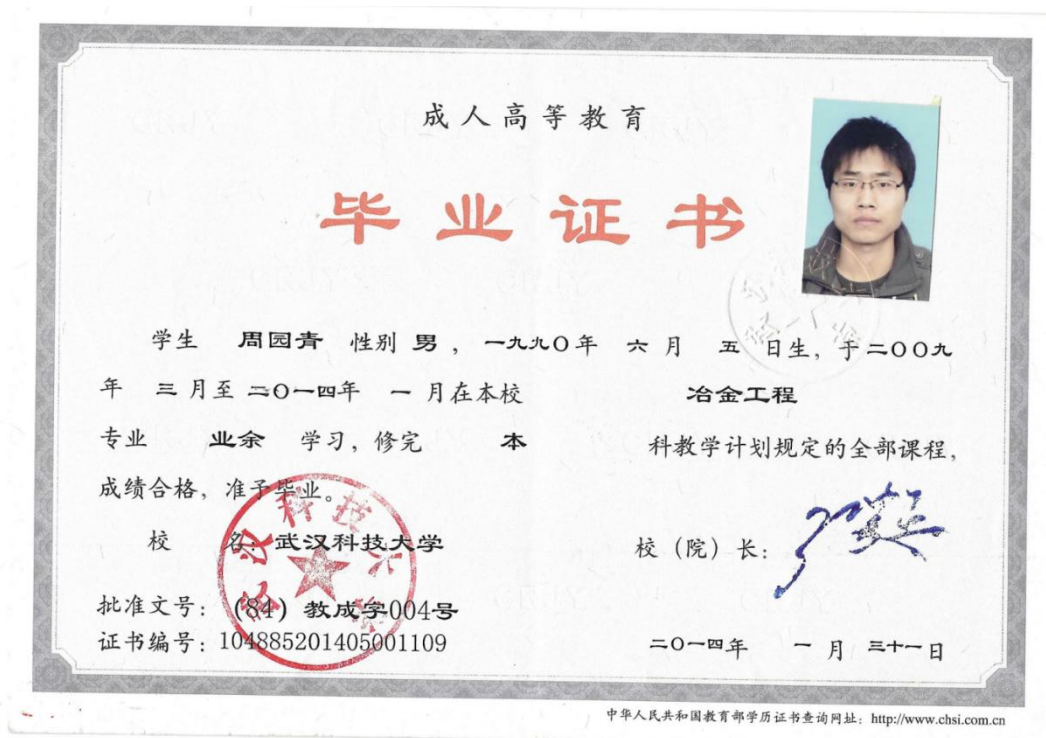 成人高等教育
毕业证书
学生 周园青 性别 男 ，一九九〇年 六 月 五 日生，于二〇〇九
年 三 月至 二〇一四年 一 月在本校 冶金工程
专业 业余 学习，修完 本 科教学计划规定的全部课程，
成绩合格，准予毕业。
校 名：武汉科技大学 校（院）长：
武汉科技大学
批准文号：（84）教成字004号
证书编号：104885201405001109 二〇一四年 一 月 三十一日
中华人民共和国教育部学历证书查询网址：http://www.chsi.com.cn